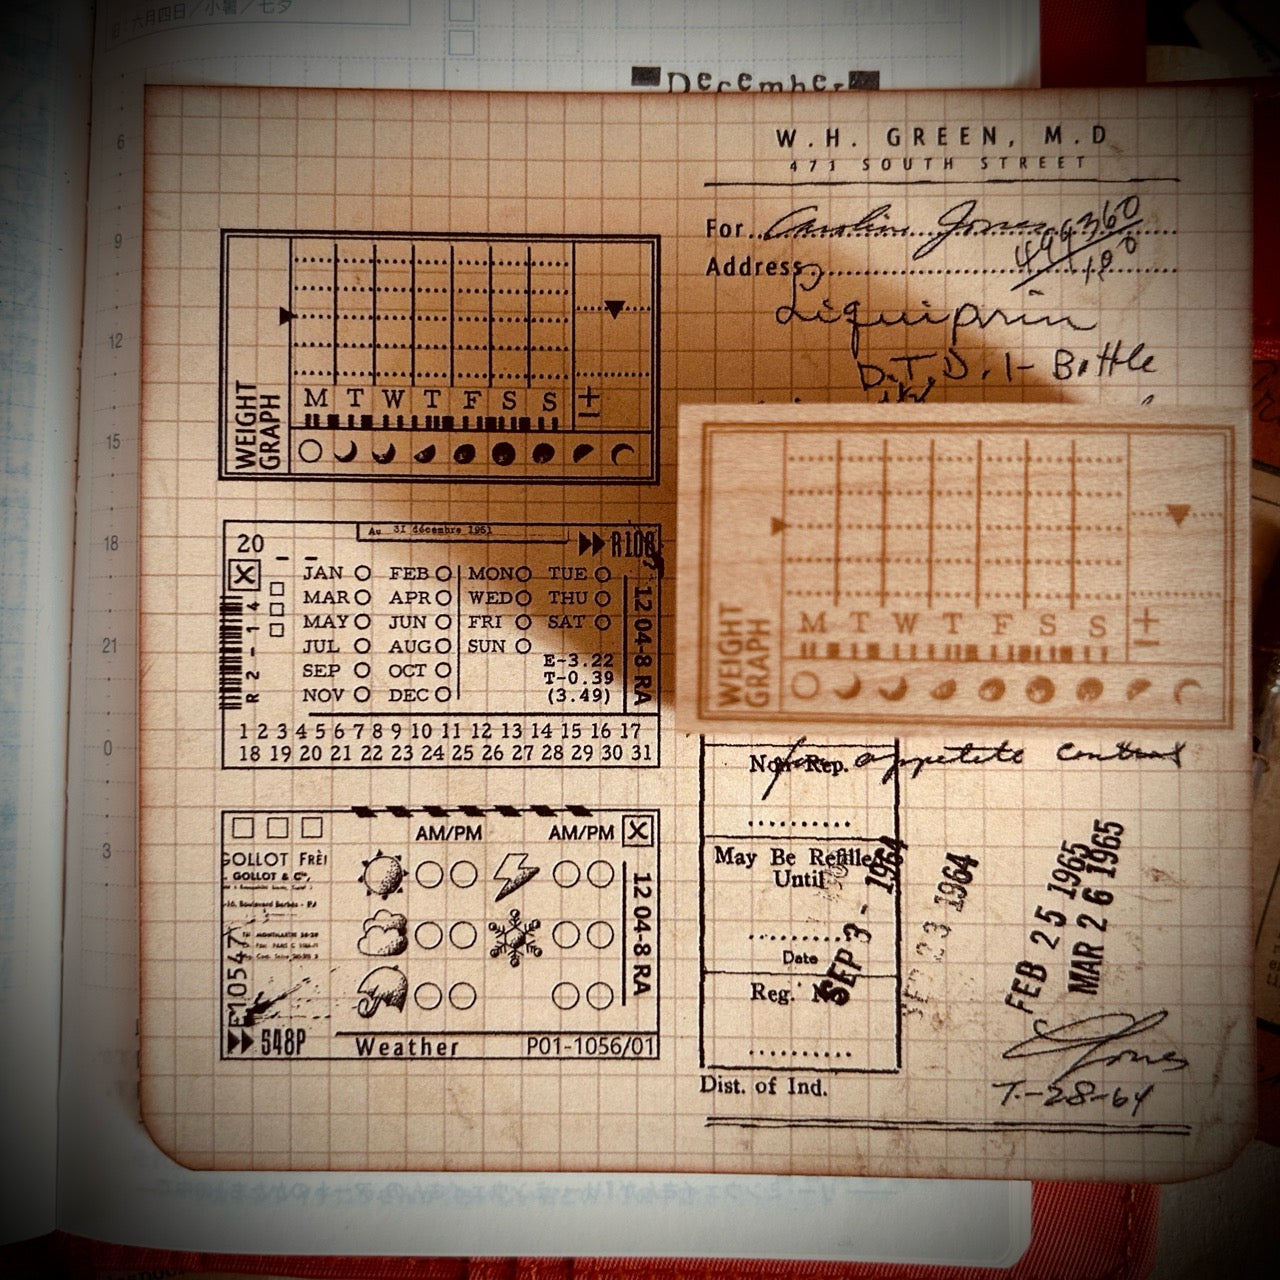 六月四日／小暑／七夕
December
6
9
12
15
18
21
0
3
W.H. GREEN, M.D
471 SOUTH STREET
For
Address
499360
Liquiprin
D.T.D. 1- Bottle
WEIGHT
GRAPH
M T W T F S S ±
20
Au 31 décembre 1951
R108
JAN FEB MON TUE
MAR APR WED THU
MAY JUN FRI SAT
JUL AUG SUN
SEP OCT
NOV DEC
E-3.22
T-0.39
(3.49)
R 2-14
12 04-8 RA
1 2 3 4 5 6 7 8 9 10 11 12 13 14 15 16 17
18 19 20 21 22 23 24 25 26 27 28 29 30 31
WEIGHT
GRAPH
M T W T F S S ±
AM/PM AM/PM
GOLLOT FRÈ
GOLLOT & Cie,
EM10547
12 04-8 RA
548P
Weather
P01-1056/01
for appetite control
Non-Rep.
May Be Refilled
Until
Date
Reg. No
Dist. of Ind.
SEP 3 - 1964
SEP 23 1964
FEB 25 1965
MAR 26 1965
Jones
7-28-64